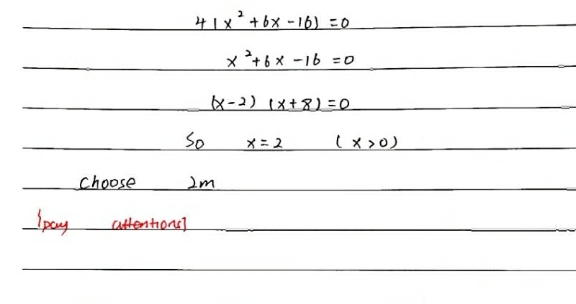 4(x²+6x-16)=0
x²+6x-16=0
(x-2)(x+8)=0
So x=2 (x>0)
choose 2m
{pay attentions]